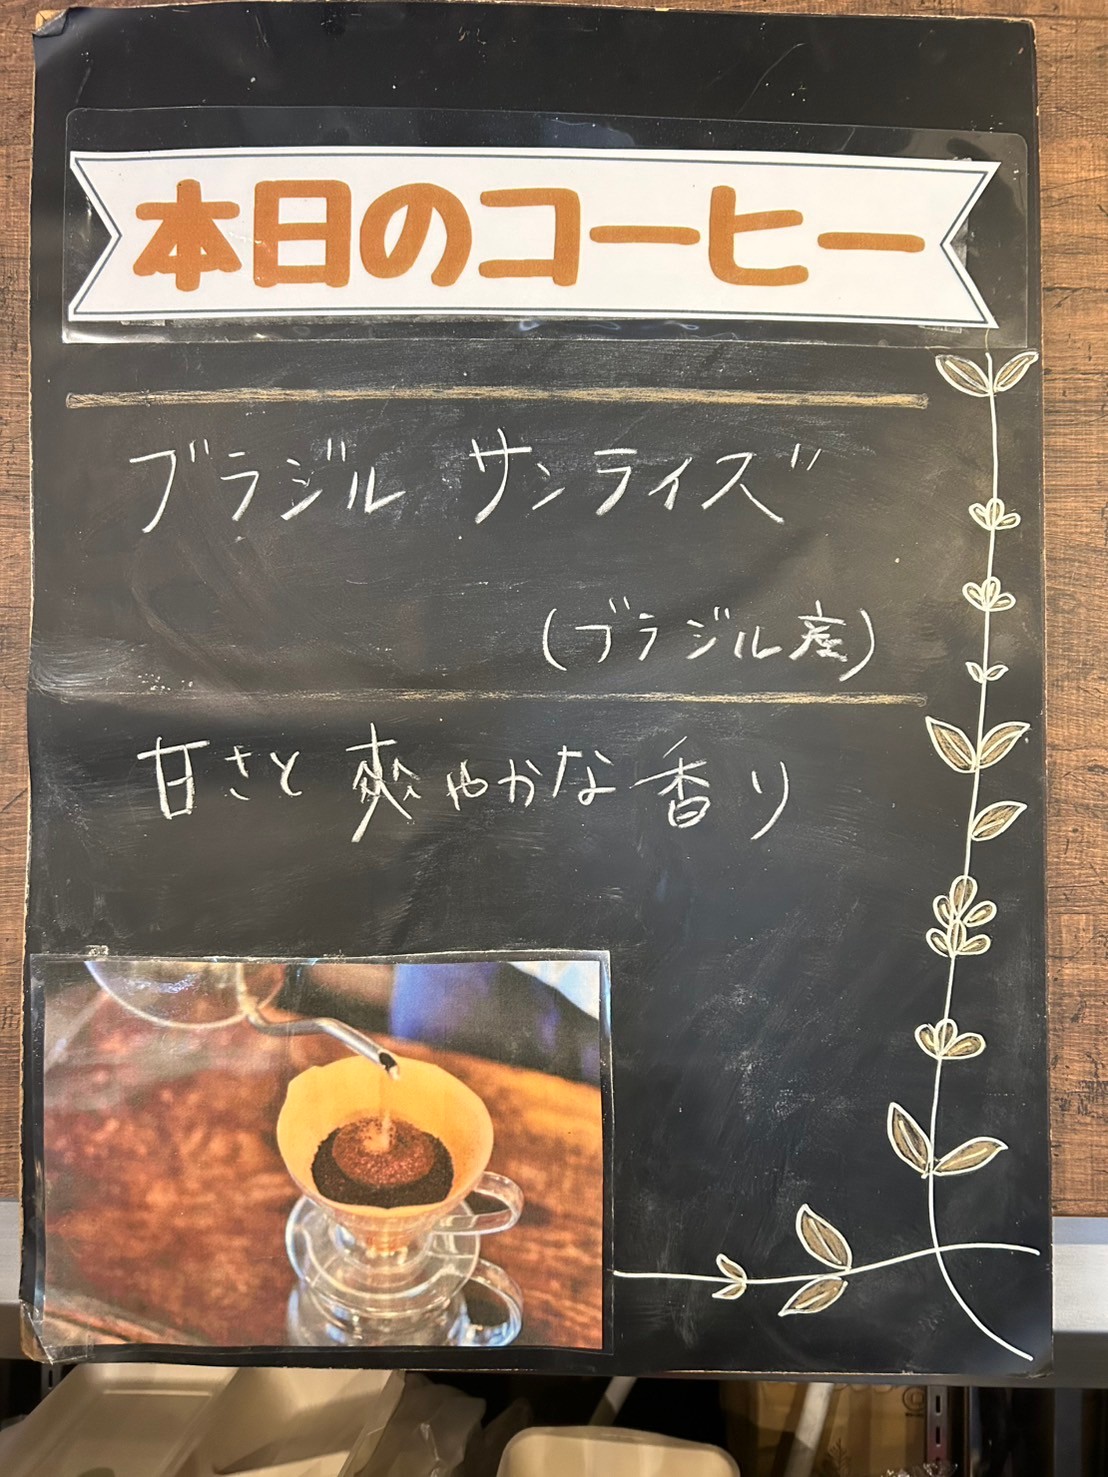 本日のコーヒー
ブラジル サンライズ
(ブラジル産)
甘さと爽やかな香り